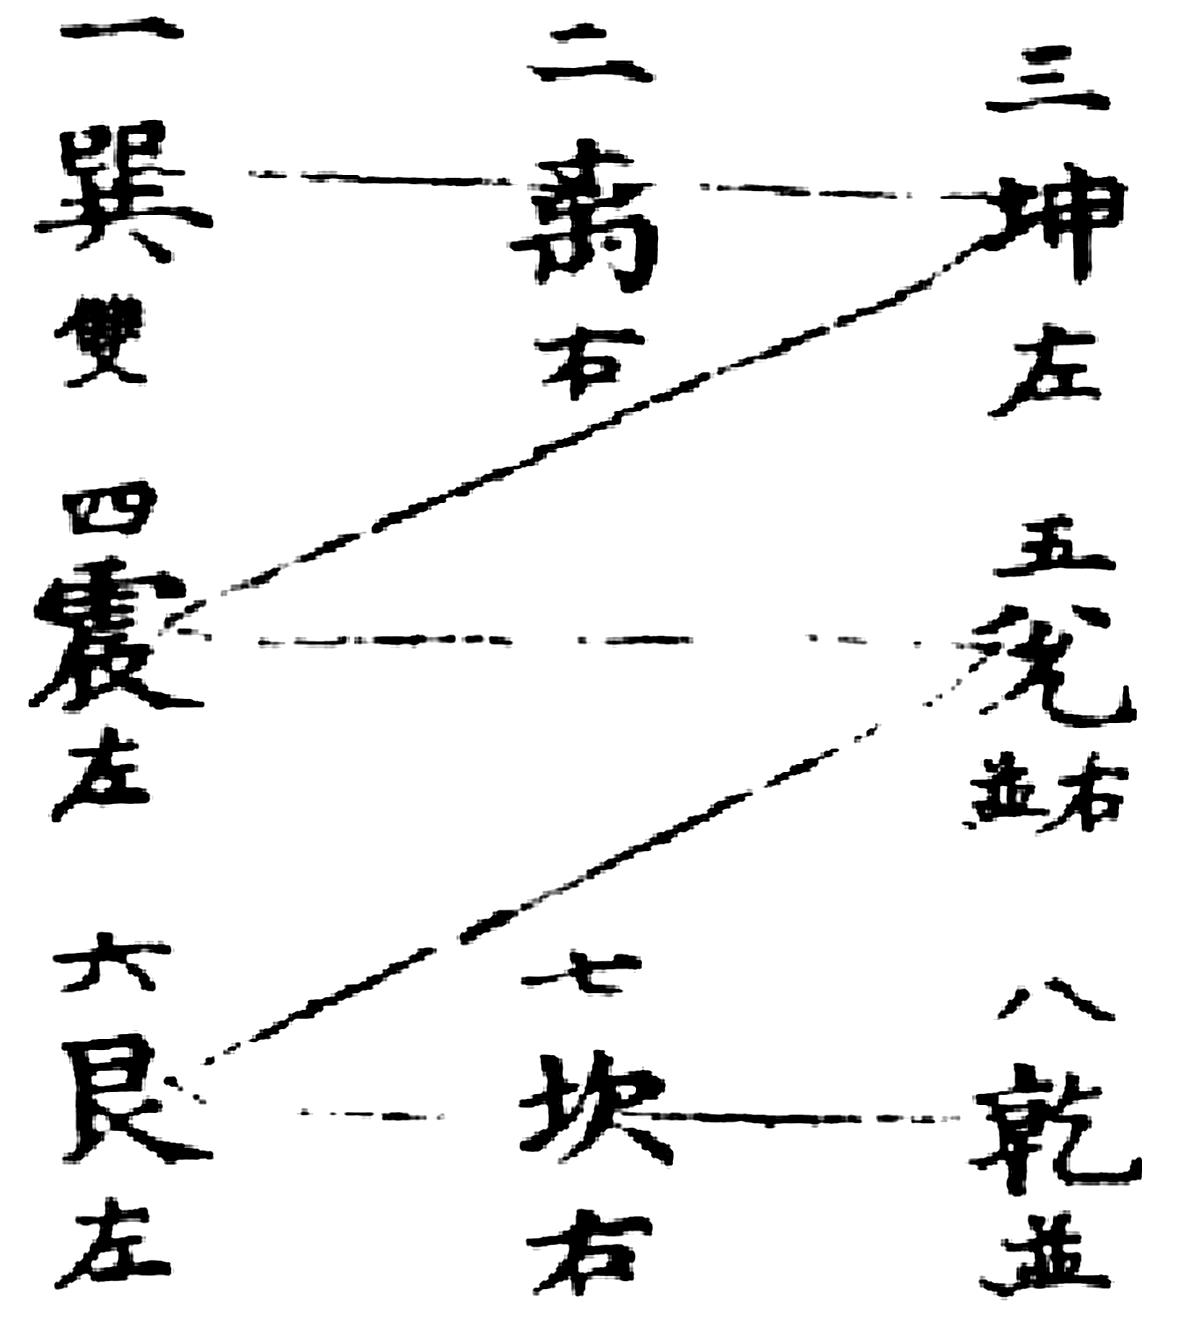 一 二 三
巽 离 坤
雙 右 左
四 五
震 兌
左 並右
六 七 八
艮 坎 乾
左 右 並